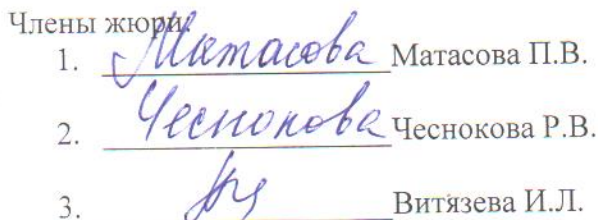 Члены жюри:
1. Матасова Матасова П.В.
2. Чеснокова Чеснокова Р.В.
3. Витязева И.Л.